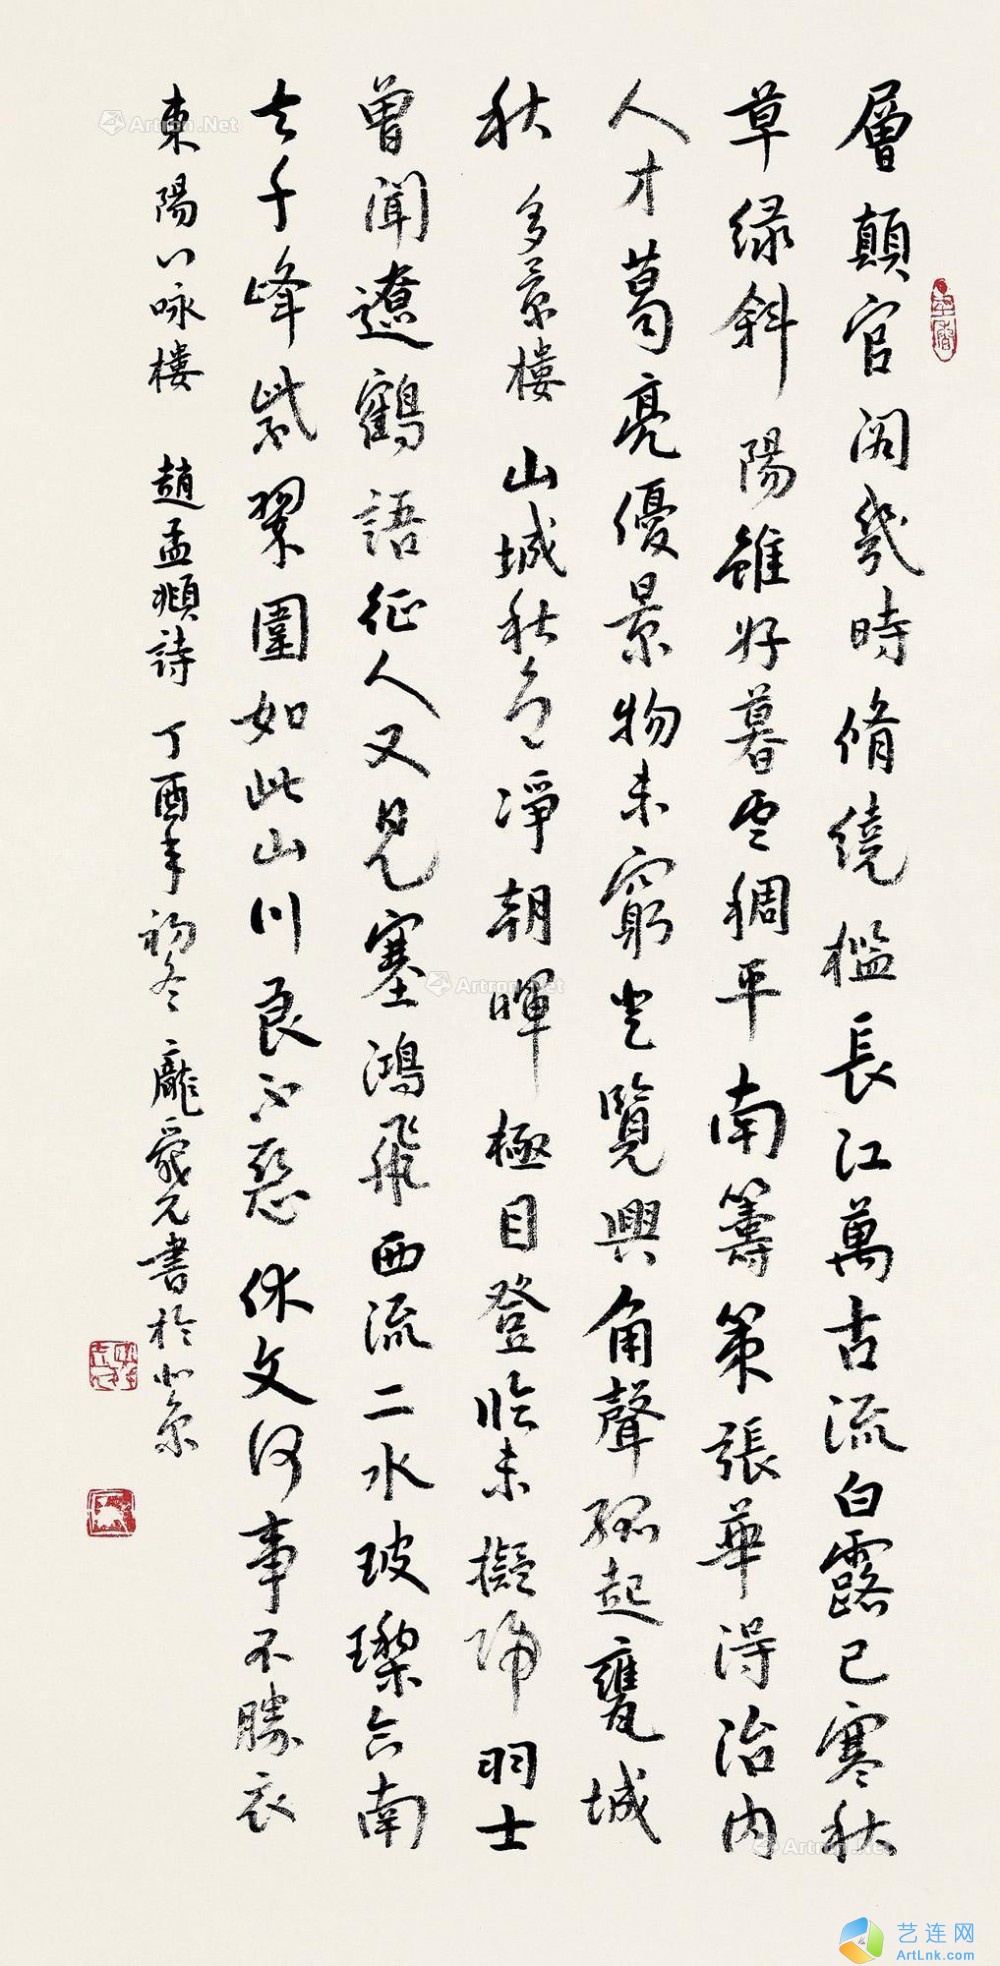 層顛官閣幾時脩繞檻長江萬古流白露已寒秋
草緑斜陽雖好暮雲稠平南籌策張華得治内
人才葛亮優景物未窮登覽興角聲孤起甕城
秋 多景樓 山城秋色淨朝暉極目登臨未擬歸羽士
曾聞遼鶴語征人又見塞鴻飛西流二水玻瓈合南
去千峰紫翠圍如此山川良不惡休文何事不勝衣
東陽八咏樓 趙孟頫詩 丁酉年初冬 龐元書於北京
Artron.Net
Artron.Net
Artron.Net
艺连网
ArtLnk.com